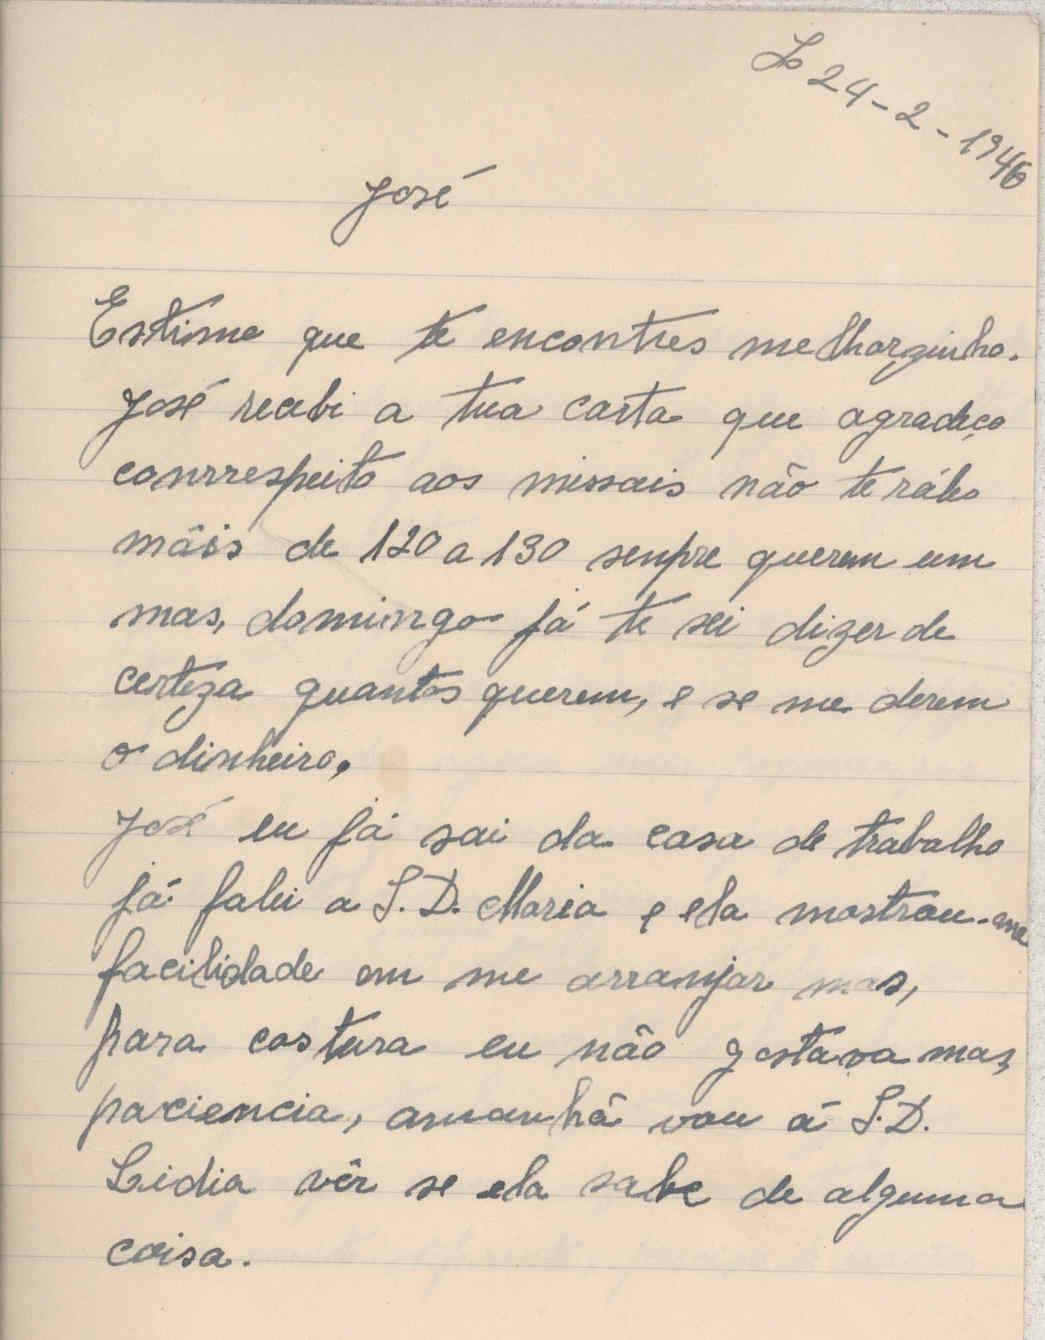 Lx 24-2-1946
José
Estimo que te encontres melhorzinho.
José recebi a tua carta que agradeço
conrrespeito aos missais não te rálo
máis de 120 a 130 senpre querem um
mas, domingo já te sei dizer de
certeza quantos querem, e se me derem
o dinheiro,
José eu já sai da casa de trabalho
já falei a S.D. Maria e ela mostrou-me
facilidade em me arranjar mas,
para costura eu não gostava mas,
paxiencia, amanhã vou á S.D.
Lidia vêr se ela sabe de alguma
coisa.